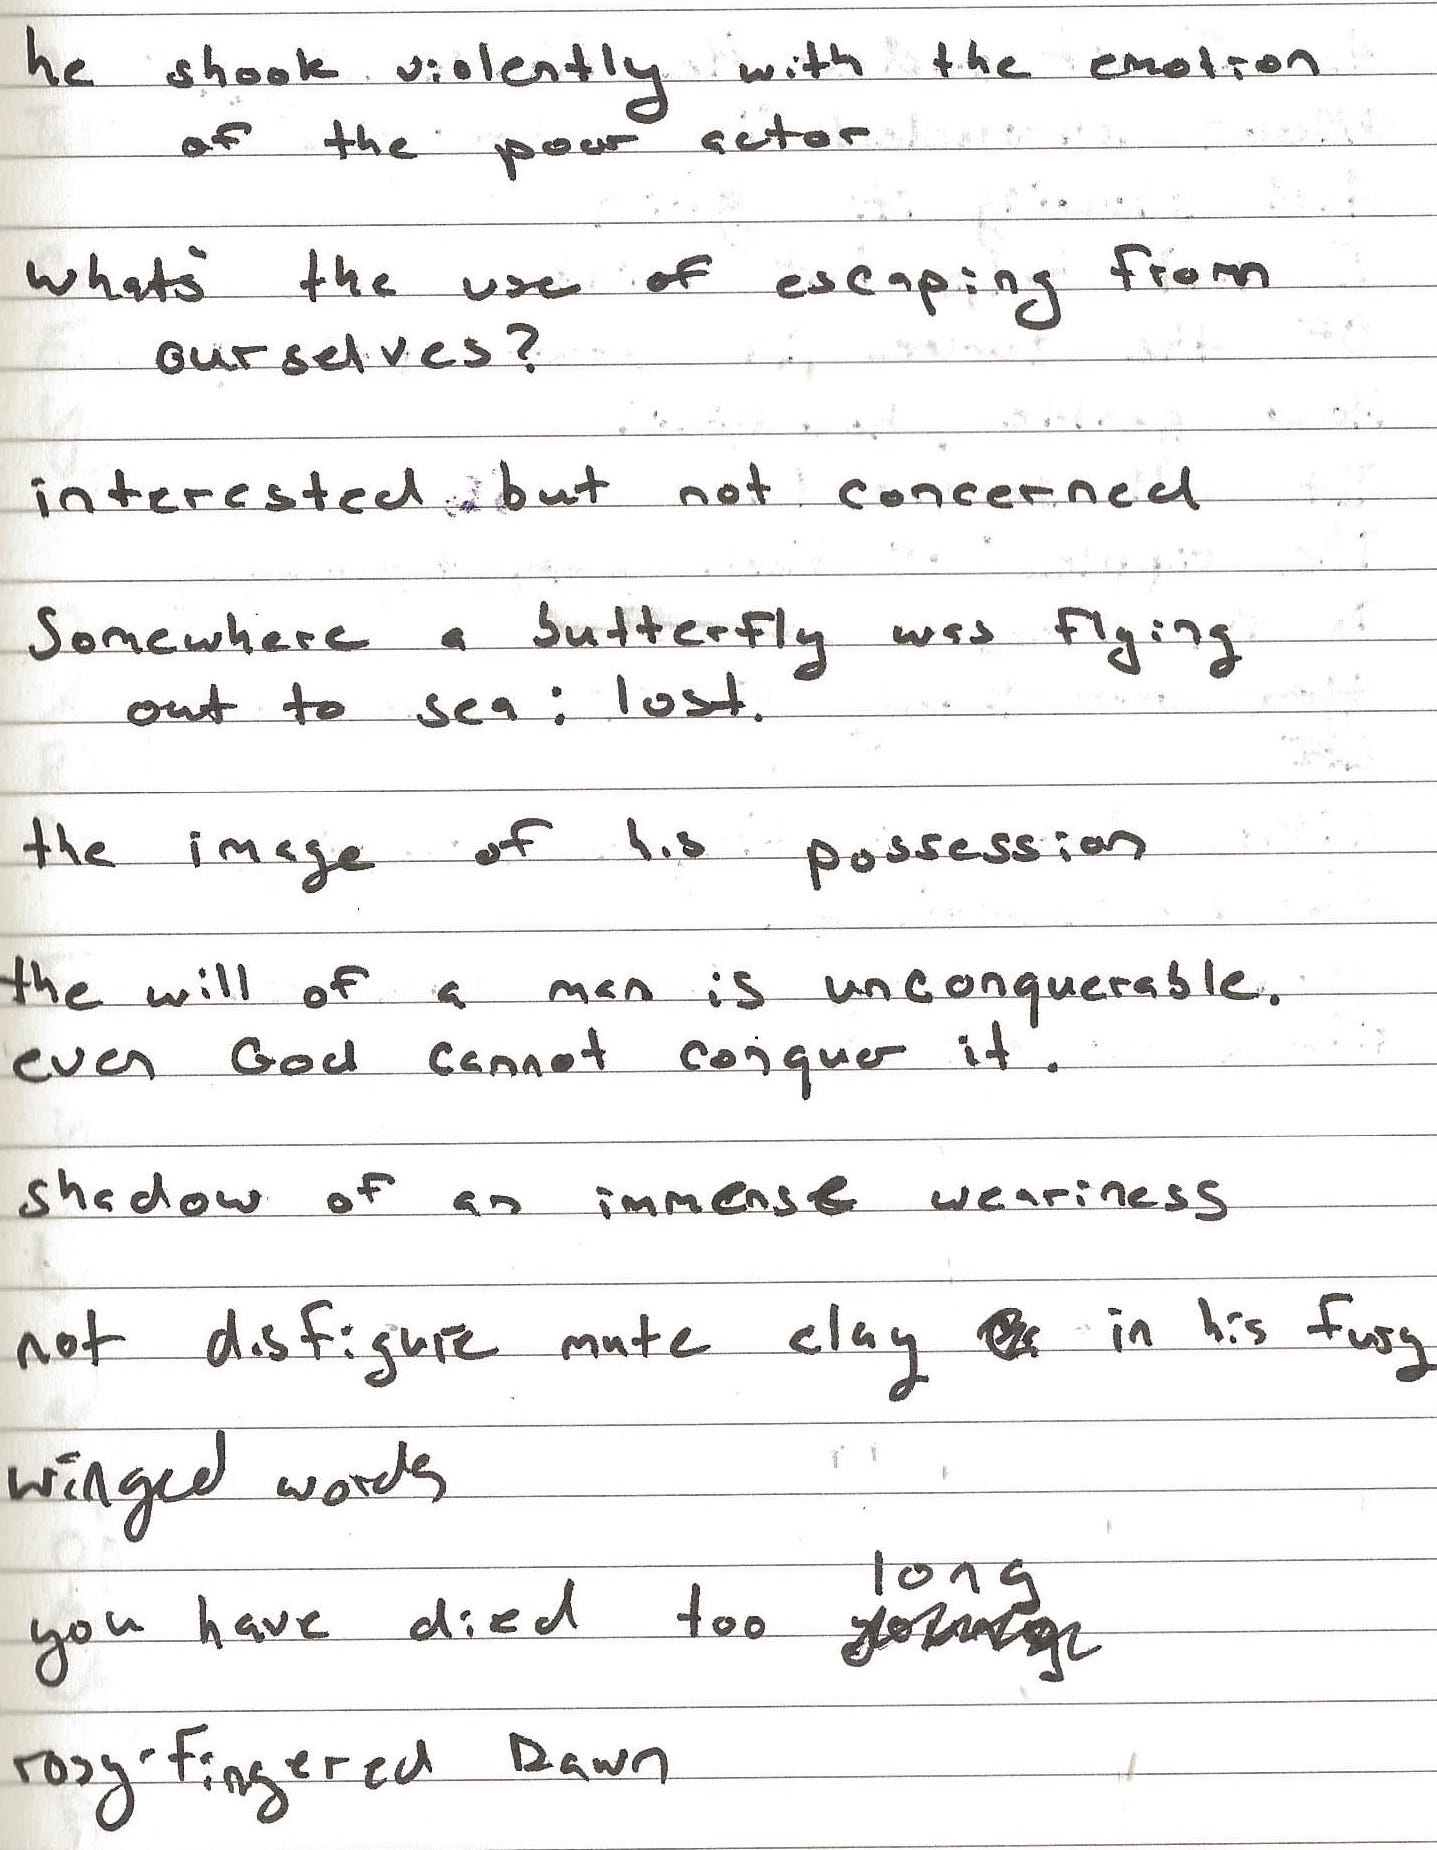 he shook violently with the emotion
of the poor actor
what's the use of escaping from
ourselves?
interested but not concerned
Somewhere a butterfly was flying
out to sea: lost.
the image of his possession
the will of a man is unconquerable.
even God cannot conquer it.
shadow of an immense weariness
not disfigure mute clay in his fury
winged words
long
you have died too
rosy-fingered Dawn